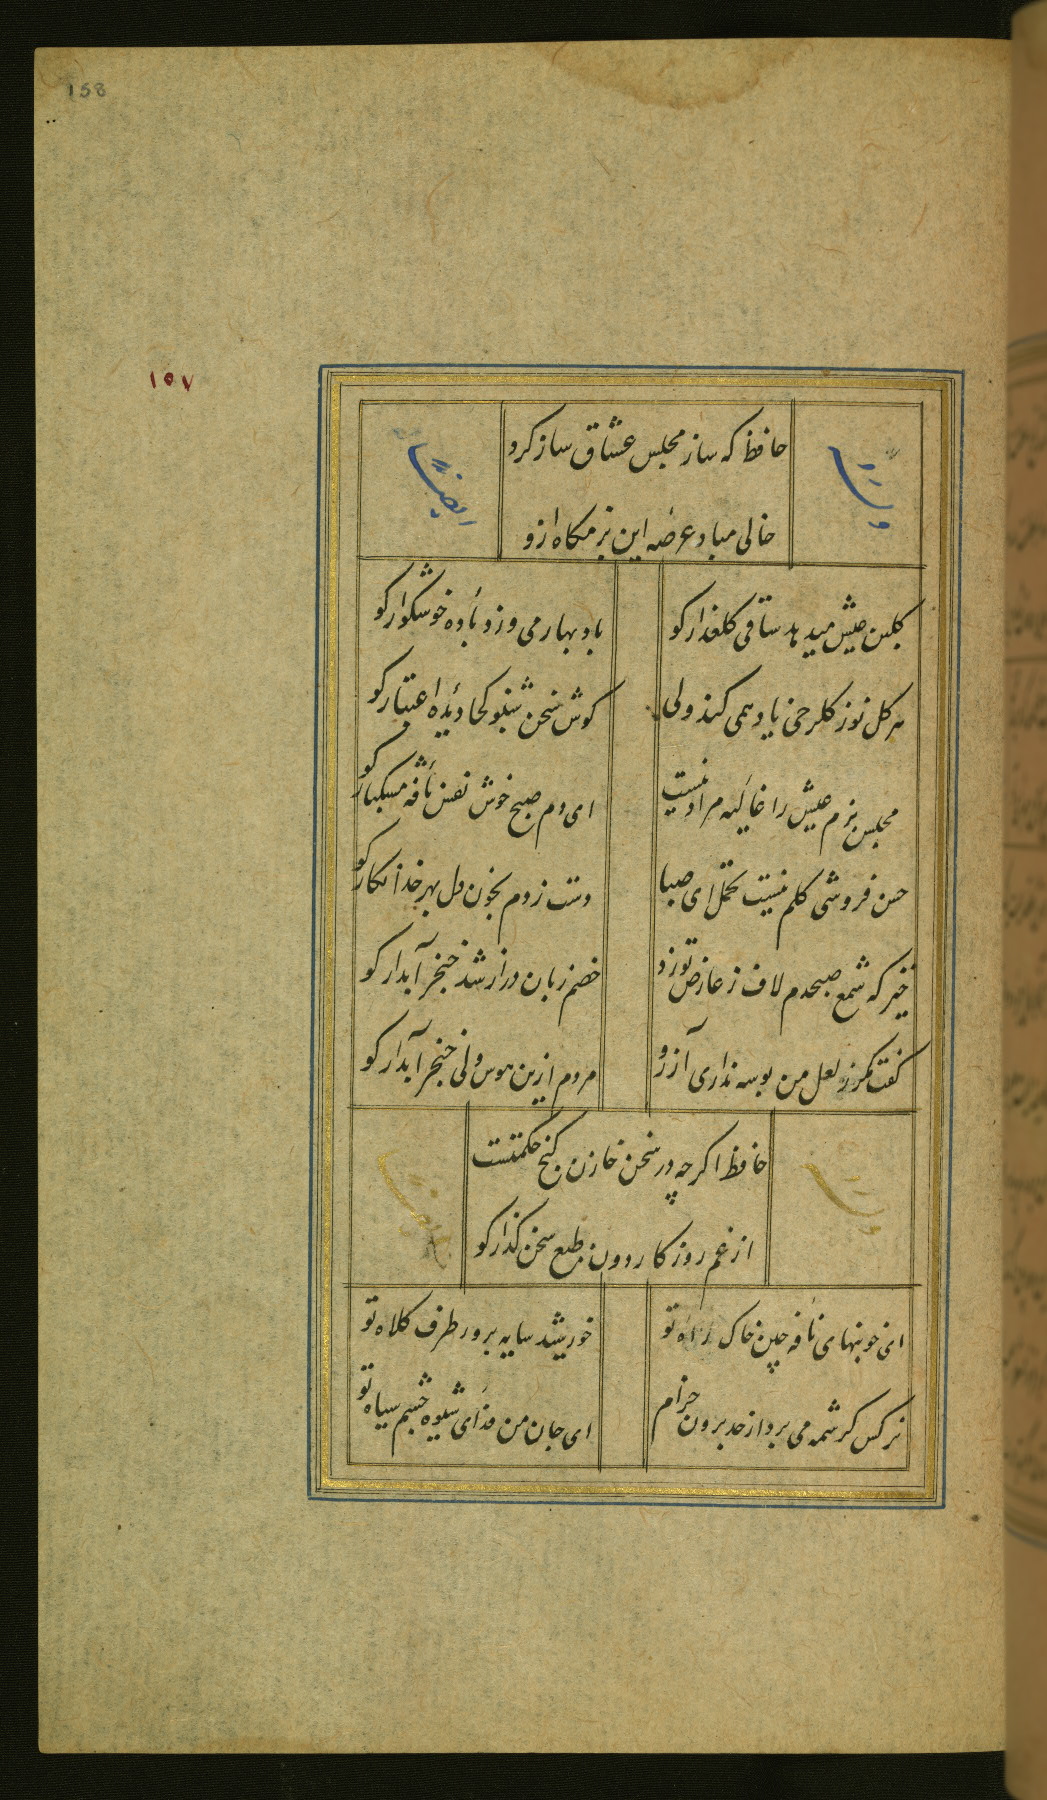 158
١٥٧
حافظ که ساز مجلس عشاق ساز کرد
وله
ایضا
خالی مباد عرصه این بزمکاه ازو
کلبن عیش میدهد ساقی کلعذار کو
باد بهار می وزد باده خوشکوار کو
هر کل نو ز کلرخی یاد همی کند ولی
کوش سخن شنو کجا دیده اعتبار کو
مجلس بزم عیش را غالیه مراد نیست
ای دم صبح خوش نفس نافه مشکبار کو
حسن فروشی کلم نیست تحمل ای صبا
دست زدم بخون دل بهر خدا نکار کو
خیز که شمع صبحدم لاف ز عارض تو زد
خصم زبان دراز شد خنجر آبدار کو
کفت مکر ز لعل من بوسه نداری آرزو
مردم ازین هوس ولی خنجر آبدار کو
حافظ اکرچه در سخن خازن کنج حکمتست
از غم روزکار دون طبع سخن کذار کو
ای خونبهای نافه چین خاک راه تو
خورشید سایه پرور طرف کلاه تو
نرکس کرشمه می برد از حد برون خرام
ای جان من فدای شیوه چشم سیاه تو